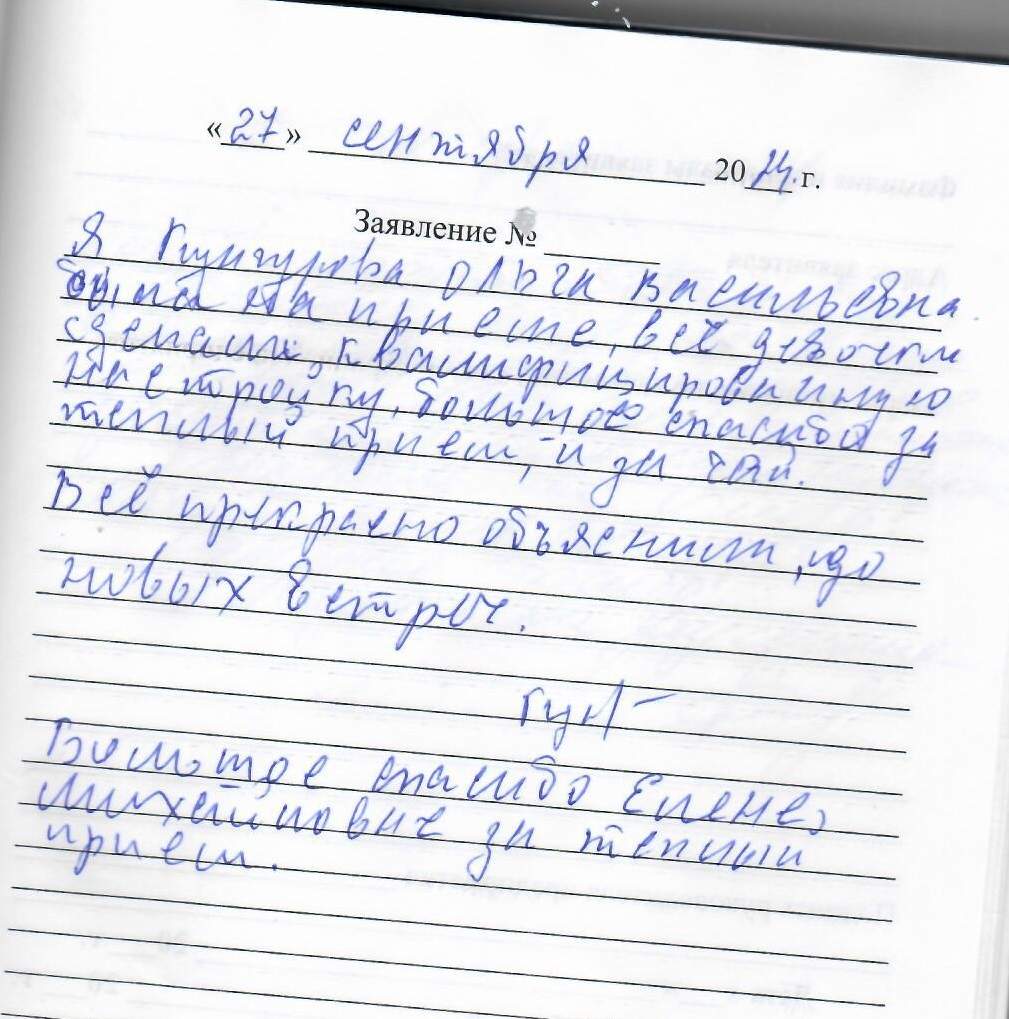 «27» сентября 2024 г.
Заявление №
Я Кунгурова Ольга Васильевна
была на приеме, всё девочки
сделали, квалифицированную
настройку, большое спасибо за
теплый прием, и за чай.
Всё прекрасно объяснили, до
новых встреч.
Большое спасибо Елене,
Михайловне за теплый
прием.